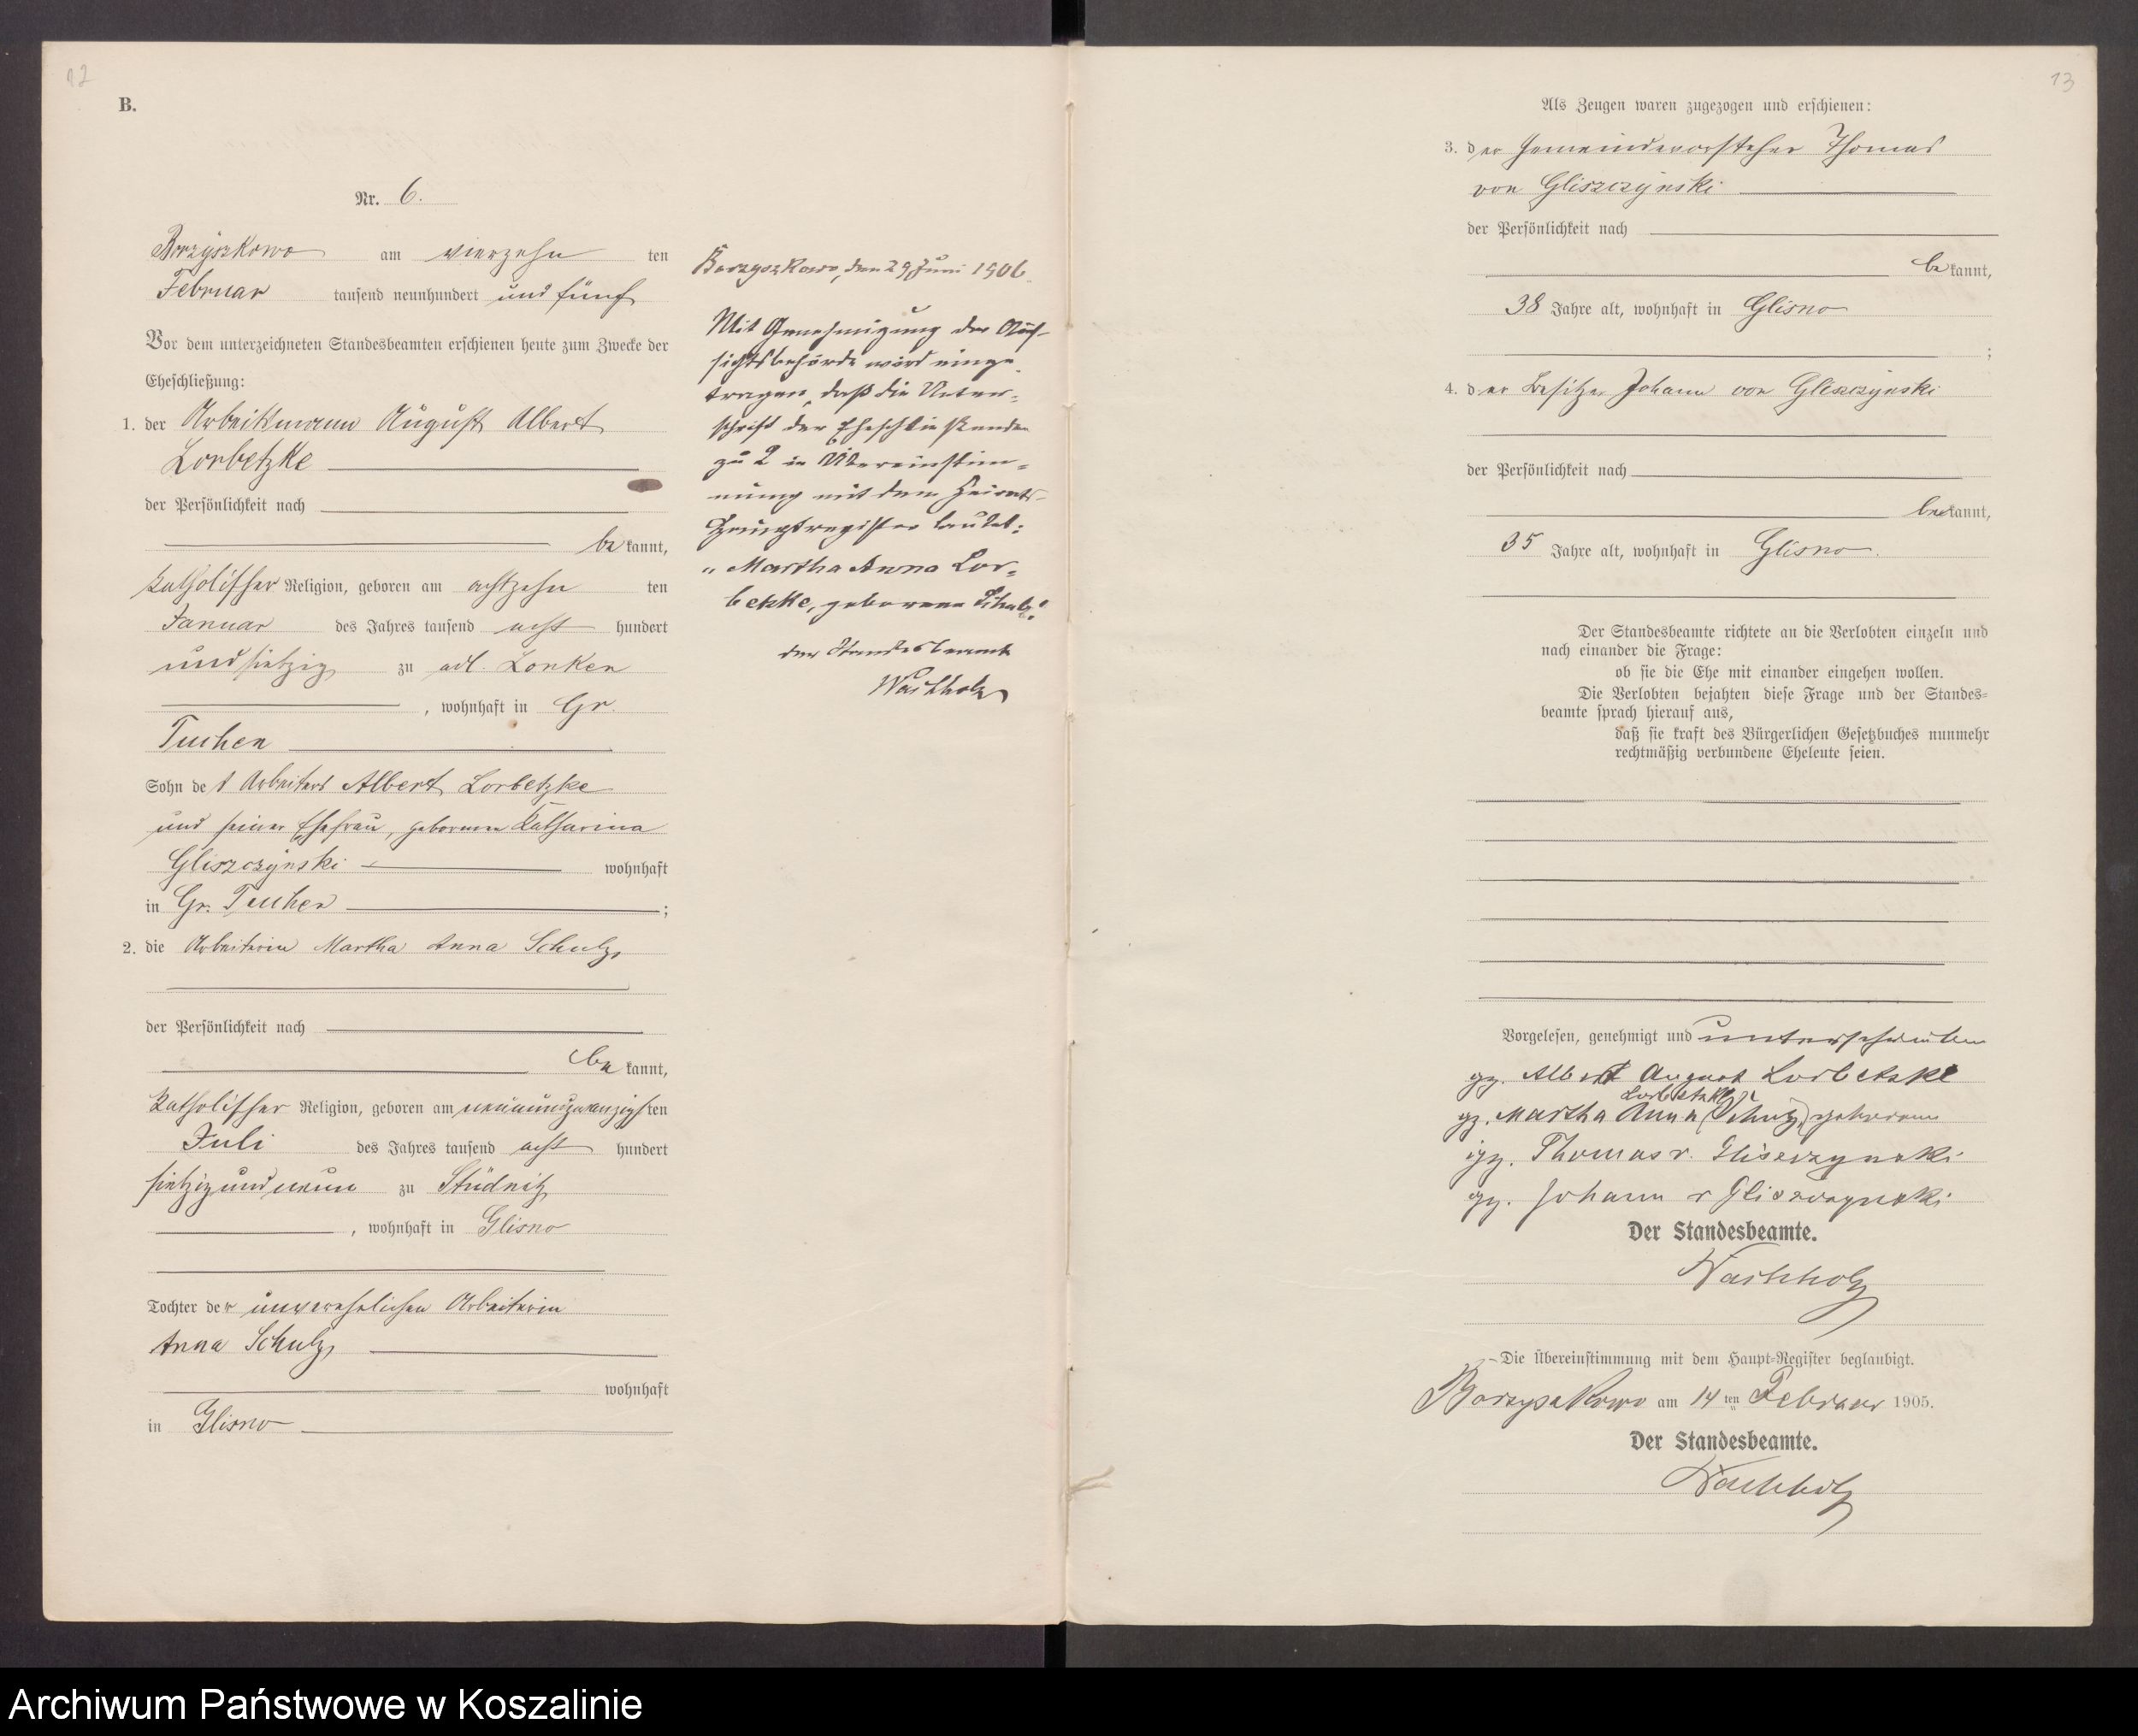 12
B.
Nr. 6.
Borzyszkowo am vierzehn ten
Februar tausend neunhundert und fünf
Vor dem unterzeichneten Standesbeamten erschienen heute zum Zwecke der
Eheschließung:
1. der Arbeitsmann August Albert
Lorbetzke
der Persönlichkeit nach
be kannt,
katholischer Religion, geboren am achtzehn ten
Januar des Jahres tausend acht hundert
und siebzig zu adl. Lonken
, wohnhaft in Gr.
Tuchen
Sohn des Arbeiters Albert Lorbetzke
und seiner Ehefrau, geborenen Katharina
Gliszczynski wohnhaft
in Gr. Tuchen ;
2. die Arbeiterin Martha Anna Schulz
der Persönlichkeit nach
be kannt,
katholischer Religion, geboren am neunundzwanzigsten
Juli des Jahres tausend acht hundert
siebzig und neun zu Studnitz
, wohnhaft in Glisno
Tochter der unverehelichen Arbeiterin
Anna Schulz
wohnhaft
in Glisno
Borzyszkowo, den 29 Juni 1906.
Mit Genehmigung der Auf-
sichtsbehörde wird einge-
tragen, daß die Unter-
schrift der Eheschließenden
zu 2 in Übereinstim-
mung mit dem Heirats-
Hauptregister lautet:
„Martha Anna Lor-
betzke, geborene Schulz."
der Standesbeamte
Wachholz
13
Als Zeugen waren zugezogen und erschienen:
3. der Gemeindevorsteher Thomas
von Gliszczynski
der Persönlichkeit nach
be kannt,
38 Jahre alt, wohnhaft in Glisno
;
4. der Besitzer Johann von Gliszczynski
der Persönlichkeit nach
be kannt,
35 Jahre alt, wohnhaft in Glisno.
Der Standesbeamte richtete an die Verlobten einzeln und
nach einander die Frage:
ob sie die Ehe mit einander eingehen wollen.
Die Verlobten bejahten diese Frage und der Standes-
beamte sprach hierauf aus,
daß sie kraft des Bürgerlichen Gesetzbuches nunmehr
rechtmäßig verbundene Eheleute seien.
Vorgelesen, genehmigt und unterschrieben
gz. Albert August Lorbetzke
Lorbetzke
gz. Martha Anna (Schulz) geborene
gz. Thomas v. Gliszczynski
gz. Johann v Gliszczynski
Der Standesbeamte.
Wachholz
Die Übereinstimmung mit dem Haupt-Register beglaubigt.
Borzyszkowo am 14 ten Februar 1905.
Der Standesbeamte.
Wachholz
Archiwum Państwowe w Koszalinie